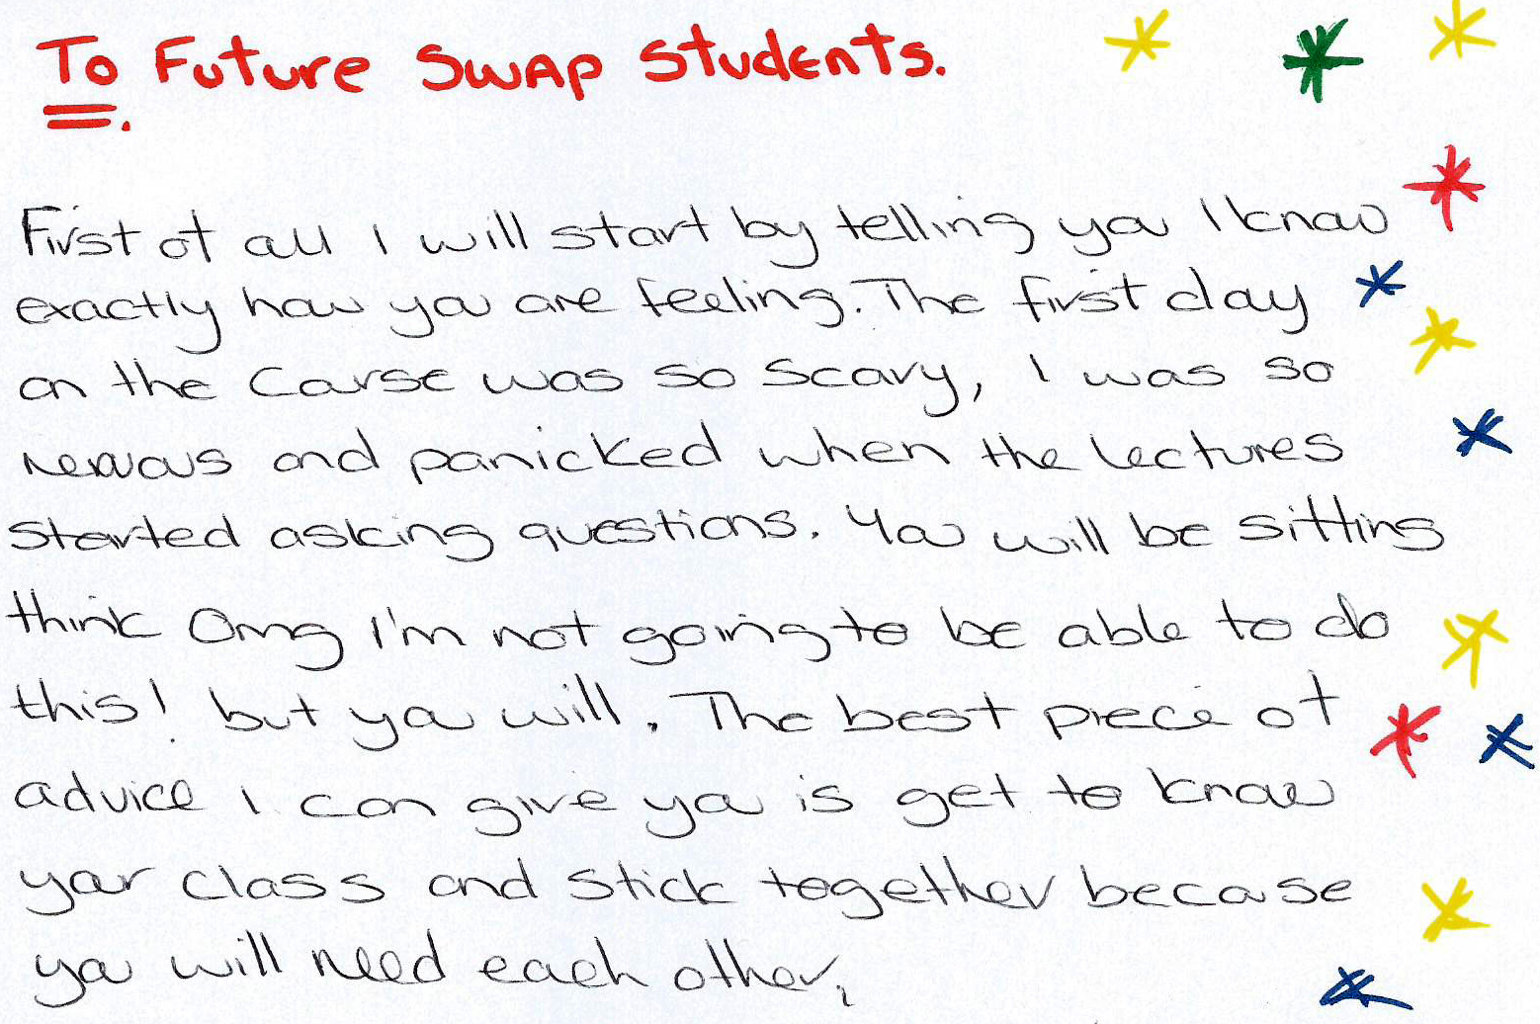 To Future SWAP Students.
First of all I will start by telling you I know
exactly how you are feeling. The first day
on the Course was so scary, I was so
nervous and panicked when the lectures
started asking questions. You will be sitting
think Omg I'm not going to be able to do
this! but you will. The best piece of
advice I can give you is get to know
your class and stick together because
you will need each other,